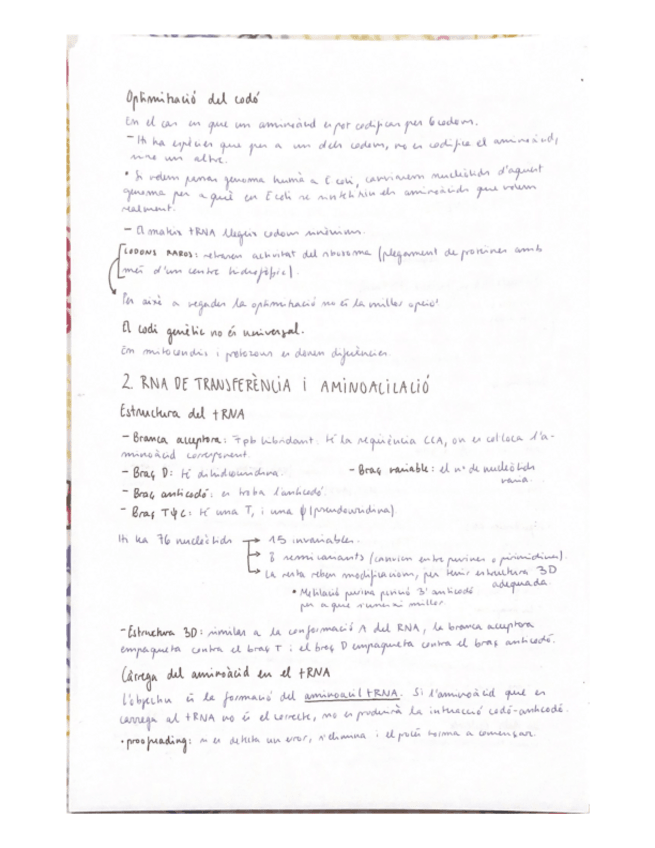 Optimització del codó
En el cas en que un aminoàcid es pot codificar per 6 codons.
- Hi ha espècies que per a un dels codons, no es codifica el aminoàcid,
sino un altre.
• Si volem passar genoma humà a E coli, canviarem nucleòtids d'aquest
genoma per a què en E coli se sintetitzin els aminoàcids que volem
realment.
- El mateix tRNA llegeix codons sinònims.
CODONS RAROS: retrasen activitat del ribosoma (plegament de proteïnes amb
més d'un centre hidrofòbic).
Per això a vegades la optimització no és la millor opció!
El codi genètic no és universal.
En mitocondris i protozous es donen diferències.
2. RNA DE TRANSFERÈNCIA i AMINOACILACIÓ
Estructura del tRNA
- Branca acceptora: 7pb hibridant. Té la seqüència CCA, on es col·loca l'a-
minoàcid corresponent.
- Braç D: té dihidrouridina.
- Braç variable: el nº de nucleòtids
varia.
- Braç anticodó: es troba l'anticodó.
- Braç TψC: té una T, i una ψ (pseudouridina).
Hi ha 76 nucleòtids → 15 invariables.
→ 8 semivariants (canvien entre purines o pirimidines).
→ La resta reben modificacions, per tenir estructura 3D
adequada.
• Metilació purina posició 3' anticodó
per a que s'uneixi millor
- Estructura 3D: similar a la conformació A del RNA, la branca acceptora
empaqueta contra el braç T i el braç D empaqueta contra el braç anticodó.
Càrrega del aminoàcid en el tRNA
L'objectiu és la formació del aminoacil tRNA. Si l'aminoàcid que es
carrega al tRNA no és el correcte, no es produirà la interacció codó-anticodó.
• proofreading: si es detecta un error, s'elimina i el procés torna a començar.